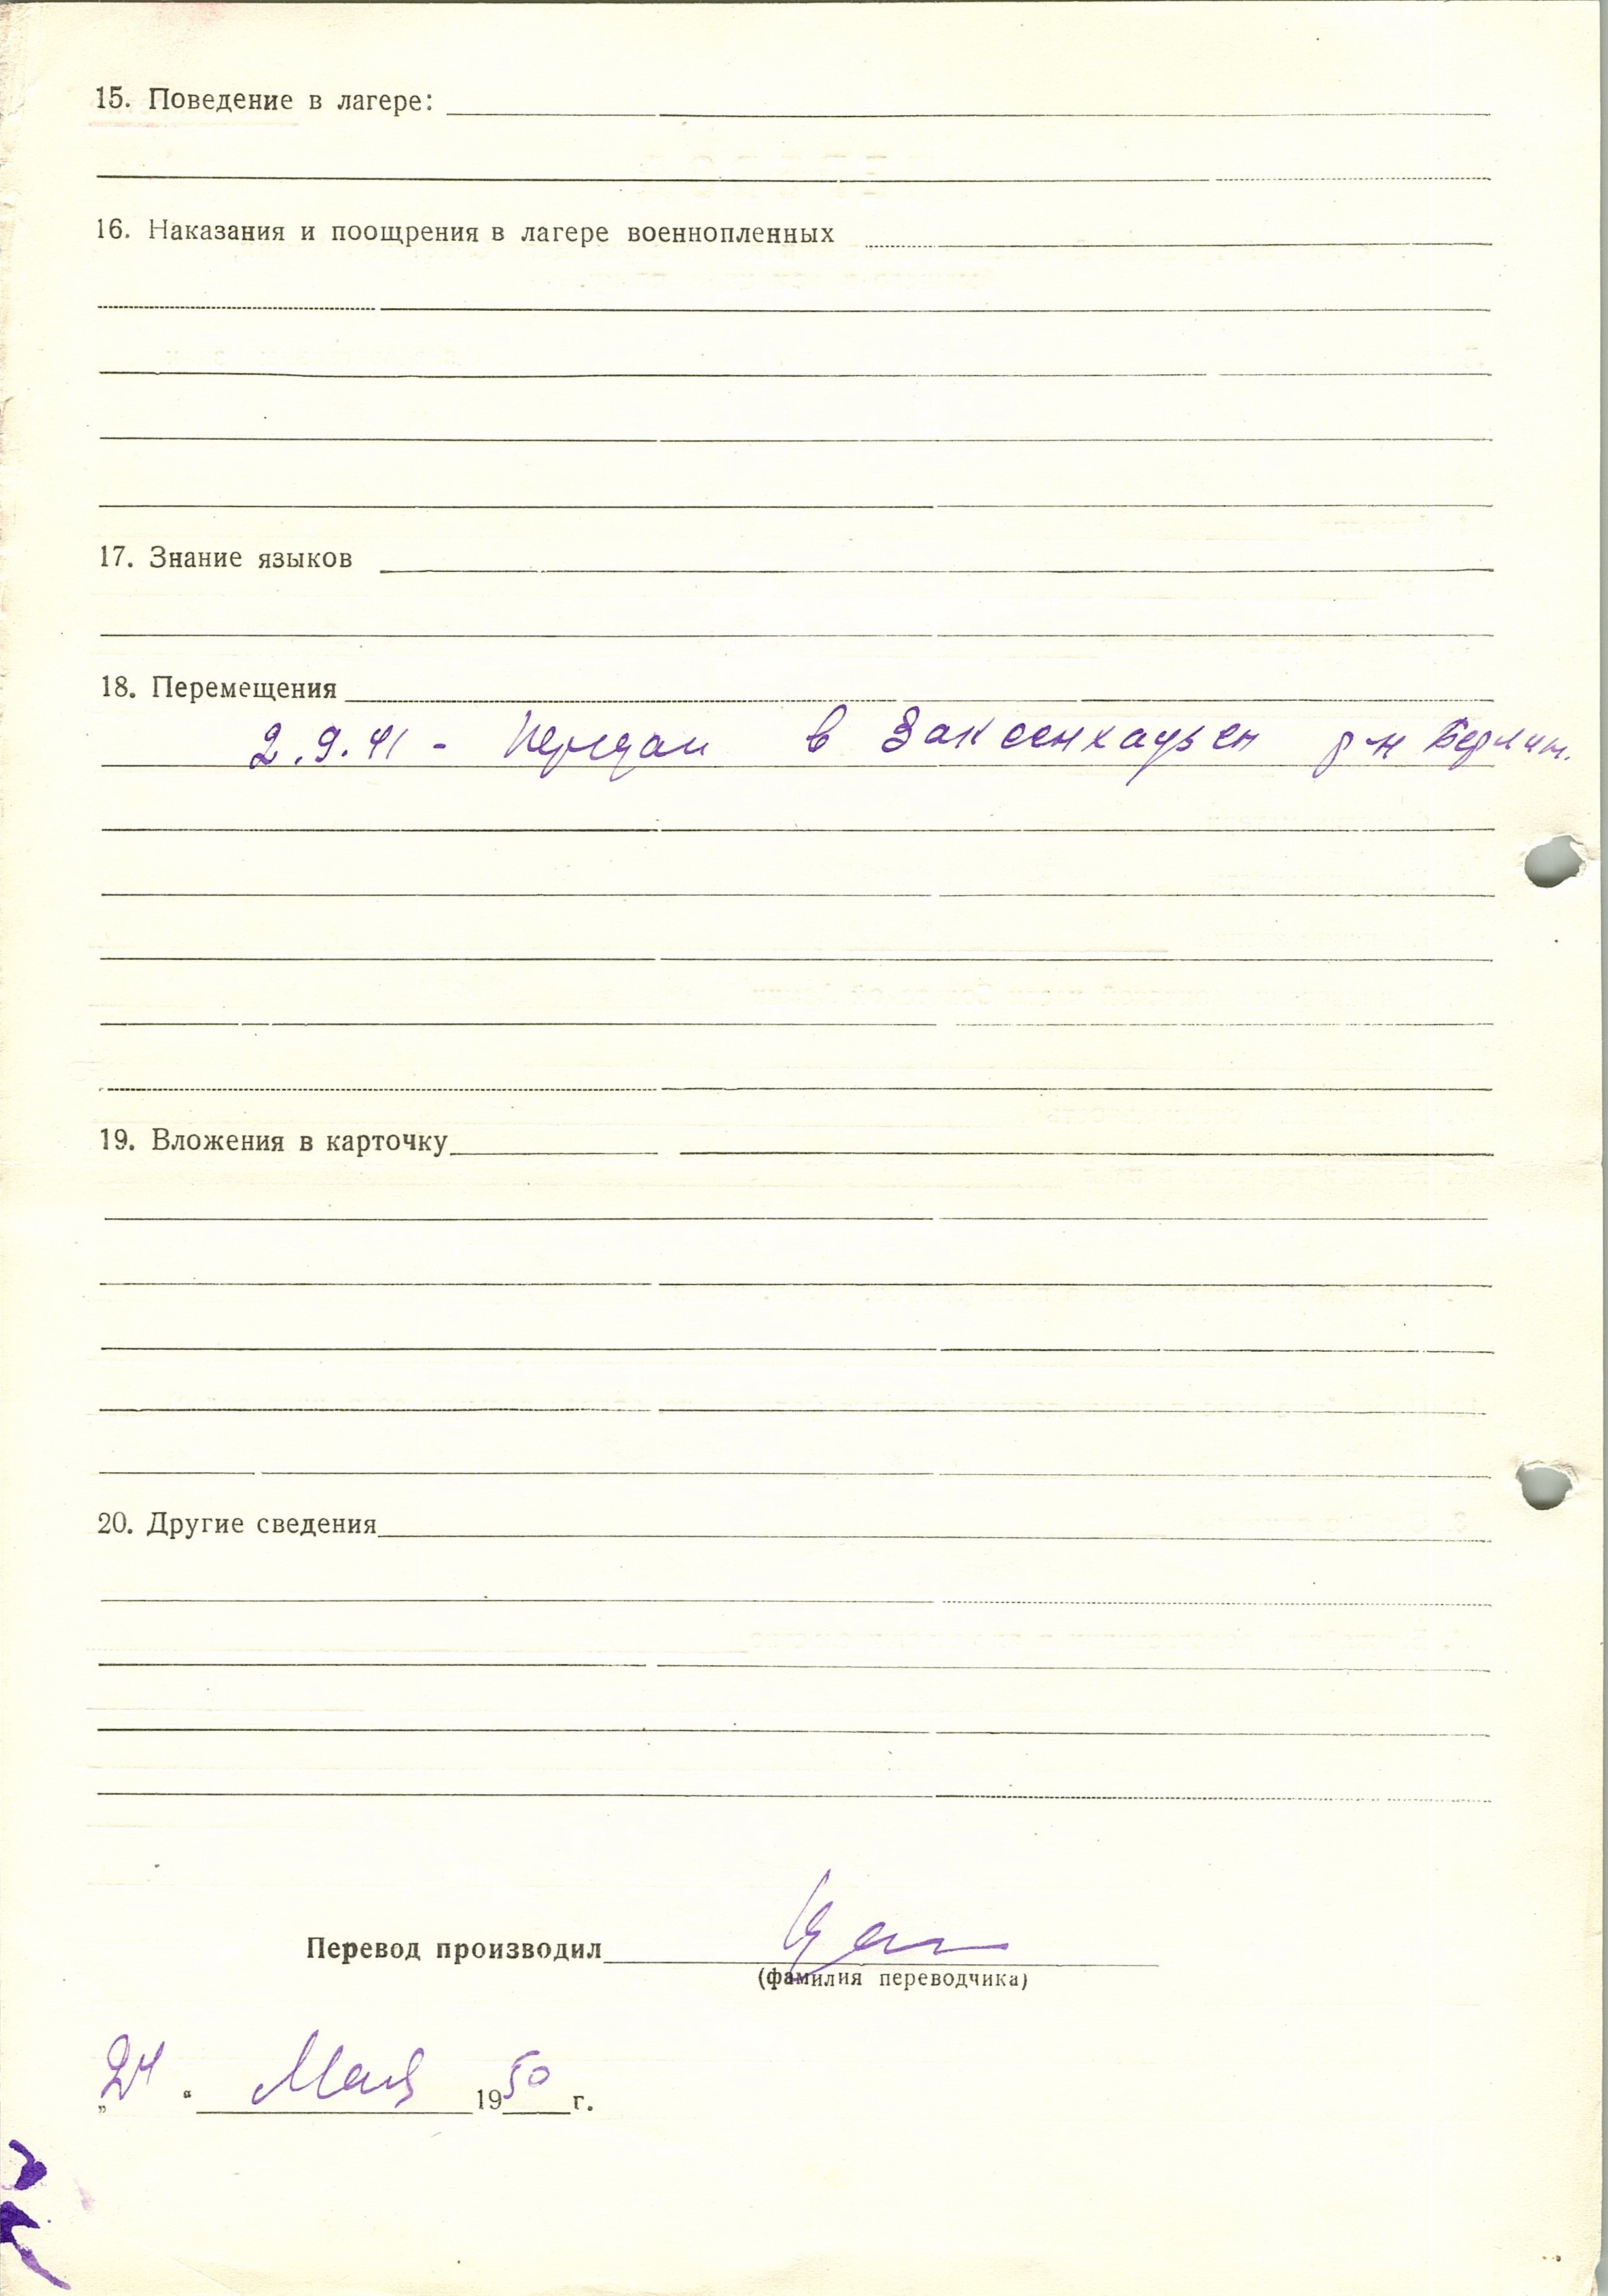 15. Поведение в лагере:
16. Наказания и поощрения в лагере военнопленных
17. Знание языков
18. Перемещения
2.9.41 - Передан в Заксенхаузен р-н Берлин.
19. Вложения в карточку
20. Другие сведения
Перевод производил
(фамилия переводчика)
„24“ Мая 1950 г.